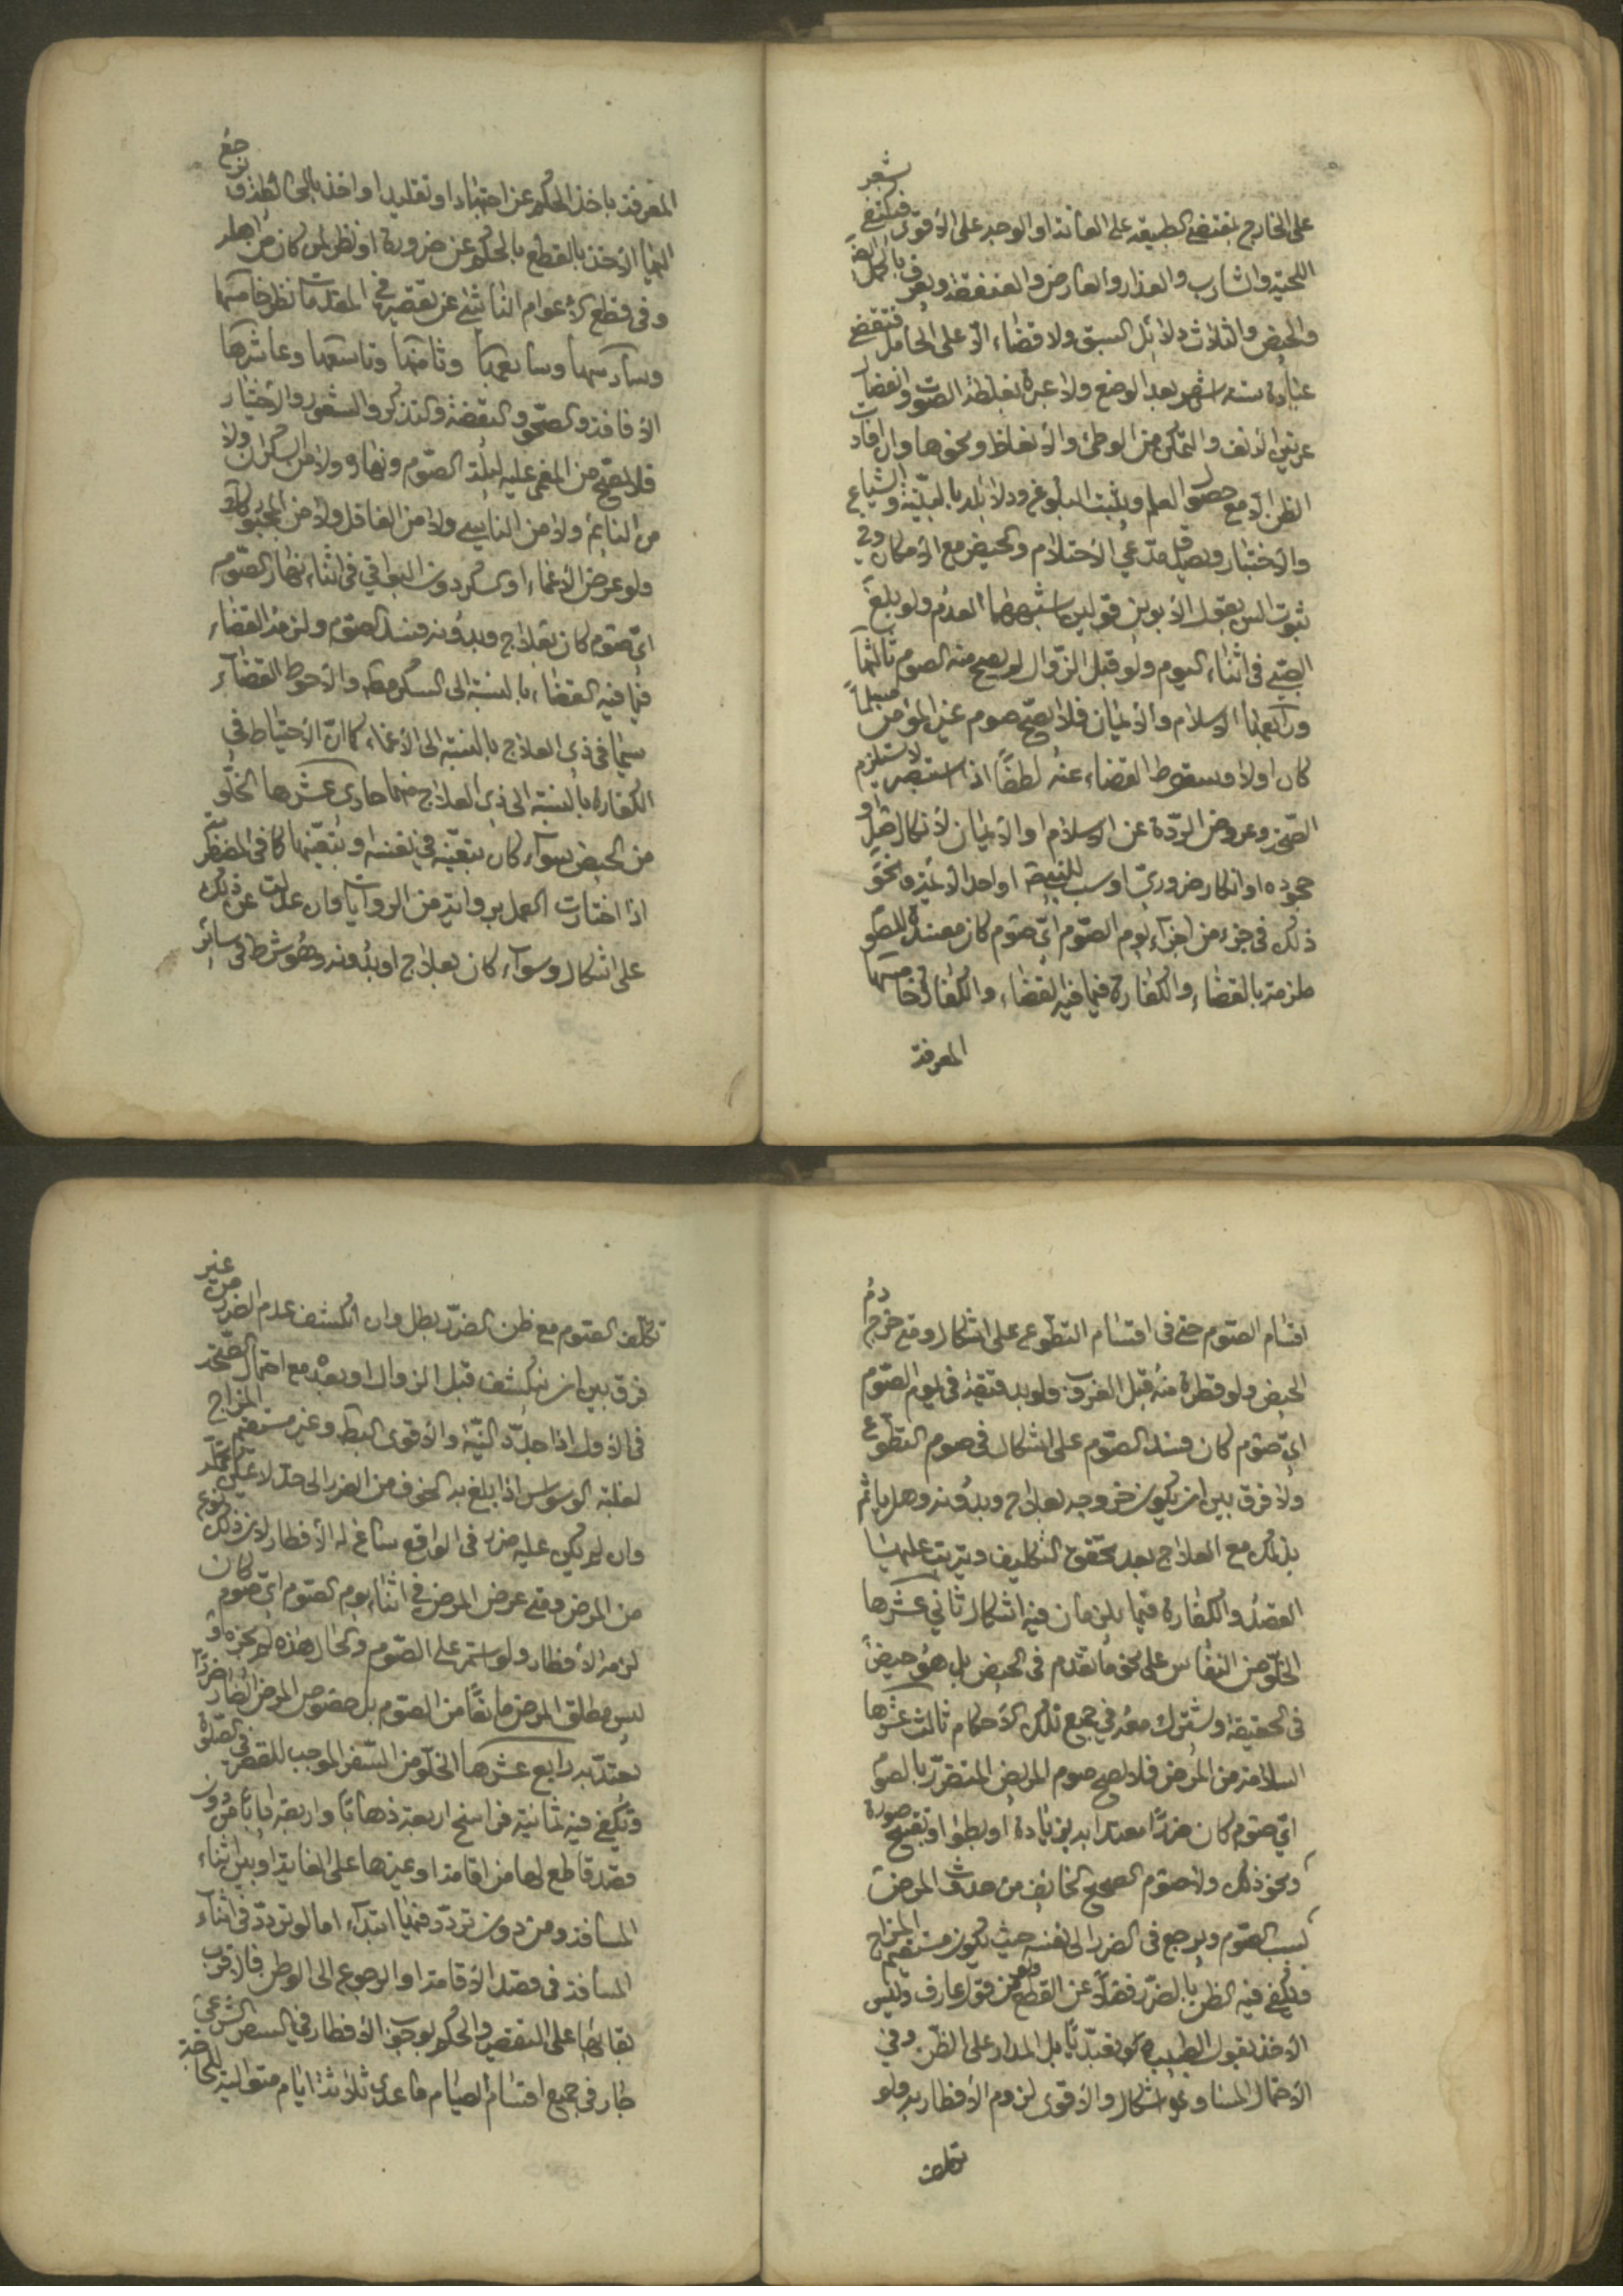 على الخارج بمقتضى الطبيعة على العانة او الوجه على الأقوى فيكتفى بشعر
اللحية والشارب والعذار والعارض والعنفقة ويعرف بالحمل ايضا
والحيض والثلاث دلائل السبق ولا قضاء الّا على الحامل فتقضى
عبادة ستة اشهر بعد الوضع ولا عبرة بغلظة الصوت وانفصال
عرنين الأنف والتمكن من الوطئ والأنعاظ ونحوها وان افادت
الظن الّا مع حصول العلم ويثبت البلوغ ودلائله بالبيّنة والشياع
والأختبار ويصدّق مدّعى الأحتلام والحيض مع الأمكان وفي
ثبوت السن بقول الأبوين قولين اشبههما العدم ولو بلغ
الصبّي في اثناء اليوم ولو قبل الزّوال لم يصح منه الصوم ثالثها
ورابعها الأسلام والأيمان فلا يصحّ صوم غير المؤمن مسلماً
كان اولا وسقوط القضاء عنه لطفاً اذا استبصر لا يستلزم
الصّحة وعروض الردّة عن الأسلام او الأيمان لأنكار اصل او
جحوده او انكار ضروريّ او سب للنبي ص او احد الأئمة ونحو
ذلك في جزء من اجزاء يوم الصّوم ايّ صوم كان مفسدة للصّوم
ملزمة بالقضاء والكفارة فيما فيه القضاء والكفارة خامسها
المعرفة
المعرفة باخذ الحكم عن اجتهاد او تقليد او اخذ بالظن ترجع
اليها الأخذ بالقطع بالحكم عن ضرورة او نظر لمن كان من اهله
وفى قطع الأعوام الناشئ عن تقصير في المقدمات نظر خامسها
وسادسها وسابعها وثامنها وتاسعها وعاشرها
الأفاقة والصّحو واليقضة والتذكر والشعور والأختيار
فلا يصحّ من المغمى عليه ليلة الصّوم ونهاره ولا من السكران ولا
من النائم ولا من الناسي ولا من الغافل ولا من المجبور
ولو عرض الأغماء او السكر دون البواقي في اثناء نهار الصّوم
ايّ صوم كان بعلاج وبدونه فسد الصّوم ولزمه القضاء
فيما فيه القضاء بالنسبة الى السكر مط والأحوط القضاء
سيّما في ذي العلاج بالنسبة الى الأغماء كما انّ الأحتياط في
الكفارة بالنسبة الى ذي العلاج منهما حادى عشرها الخلّو
من الحيض سواء كان بتعيّنه في نفسه او بتعيّنها كما في المضطربة
اذا اختارت العمل برواية من الروايات وان عدلت عن ذلك
على اشكال وسواء كان بعلاج او بدونه وهو شرط في سائر
اقسام الصّوم حتى في اقسام التطّوع على اشكال ومتى خرج دم
الحيض ولو قطرة منه قبل الغروب ولو بدقيقة في يوم الصّوم
ايّ صوم كان فسد الصّوم على اشكال في صوم التطوّع
ولا فرق بين ان يكون خروجه بعلاج وبدونه وهل ياثم
بذلك مع العلاج بعد تحقّق التكليف ويترتب عليها
القضاء والكفارة فيما يلزمان فيه اشكال ثاني عشرها
الخلّو من النفاس على نحو ما تقدم في الحيض بل هو حيض
في الحقيقة ويشترك معه في جميع تلك الأحكام ثالث عشرها
السلامة من المرض فلا يصح صوم المريض المتضرّر بالصوم
ايّ صوم كان ضررا معتدا به بزيادة او بطؤ او تقبيح صورة
ونحو ذلك ولا صوم الصحيح الخائف من حدوث المرض
بسبب الصّوم ويرجع في الضرر الى نفسه حيث يكون مستقيم المزاج
ويكفى فيه الظن بالضرر فضلاً عن القطع ولو من قول عارف وليس
الأخذ بقول الطبيب تعبّديّا بل المدار على الظّن وفي
الأحتمال المساوي اشكال والأقوى لزوم الأفطار به ولو
تكلف
تكلّف الصّوم مع ظن الضرر بطل وان انكشف عدم الضرر من غير
فرق بين ان ينكشف قبل الزوال او بعده مع احتمال الصّحة
في الأول اذا جدّد النيّة والأقوى البط وغير مستقيم المزاج
لغلبة الوسواس اذا بلغ به الخوف من الضرر الى حدّ لا يمكن تحمله
وان لم يكن عليه ضرر في الواقع ساغ له الأفطار لان ذلك نوع
من المرض ومتى عرض المرض في اثناء يوم الصّوم ايّ صوم كان
لزمه الأفطار ولو استمر على الصّوم والحال هذه لم يجزه و
ليس مطلق المرض مانعاً من الصّوم بل خصوص المرض الضار ضررا
يعتدّ به رابع عشرها الخلّو من السّفر الموجب للقصر في الصّلوة
ويكفي فيه ثمانية فراسخ اربعة ذهابا واربعة ايابا من دون
قصد قاطع لها من اقامة او غيرها على الغاية او بين اثناء
المسافة ومن دون تردّد فيها ابتداء اما لو تردّد في اثناء
المسافة في قصد الأقامة او الرجوع الى الوطن فالأقرب
بقائها على التقصير والحكم بوجوب الأفطار في السفر الشرعى
جار في جميع اقسام الصيام ما عدى ثلاثة ايام متوالية للحاجة